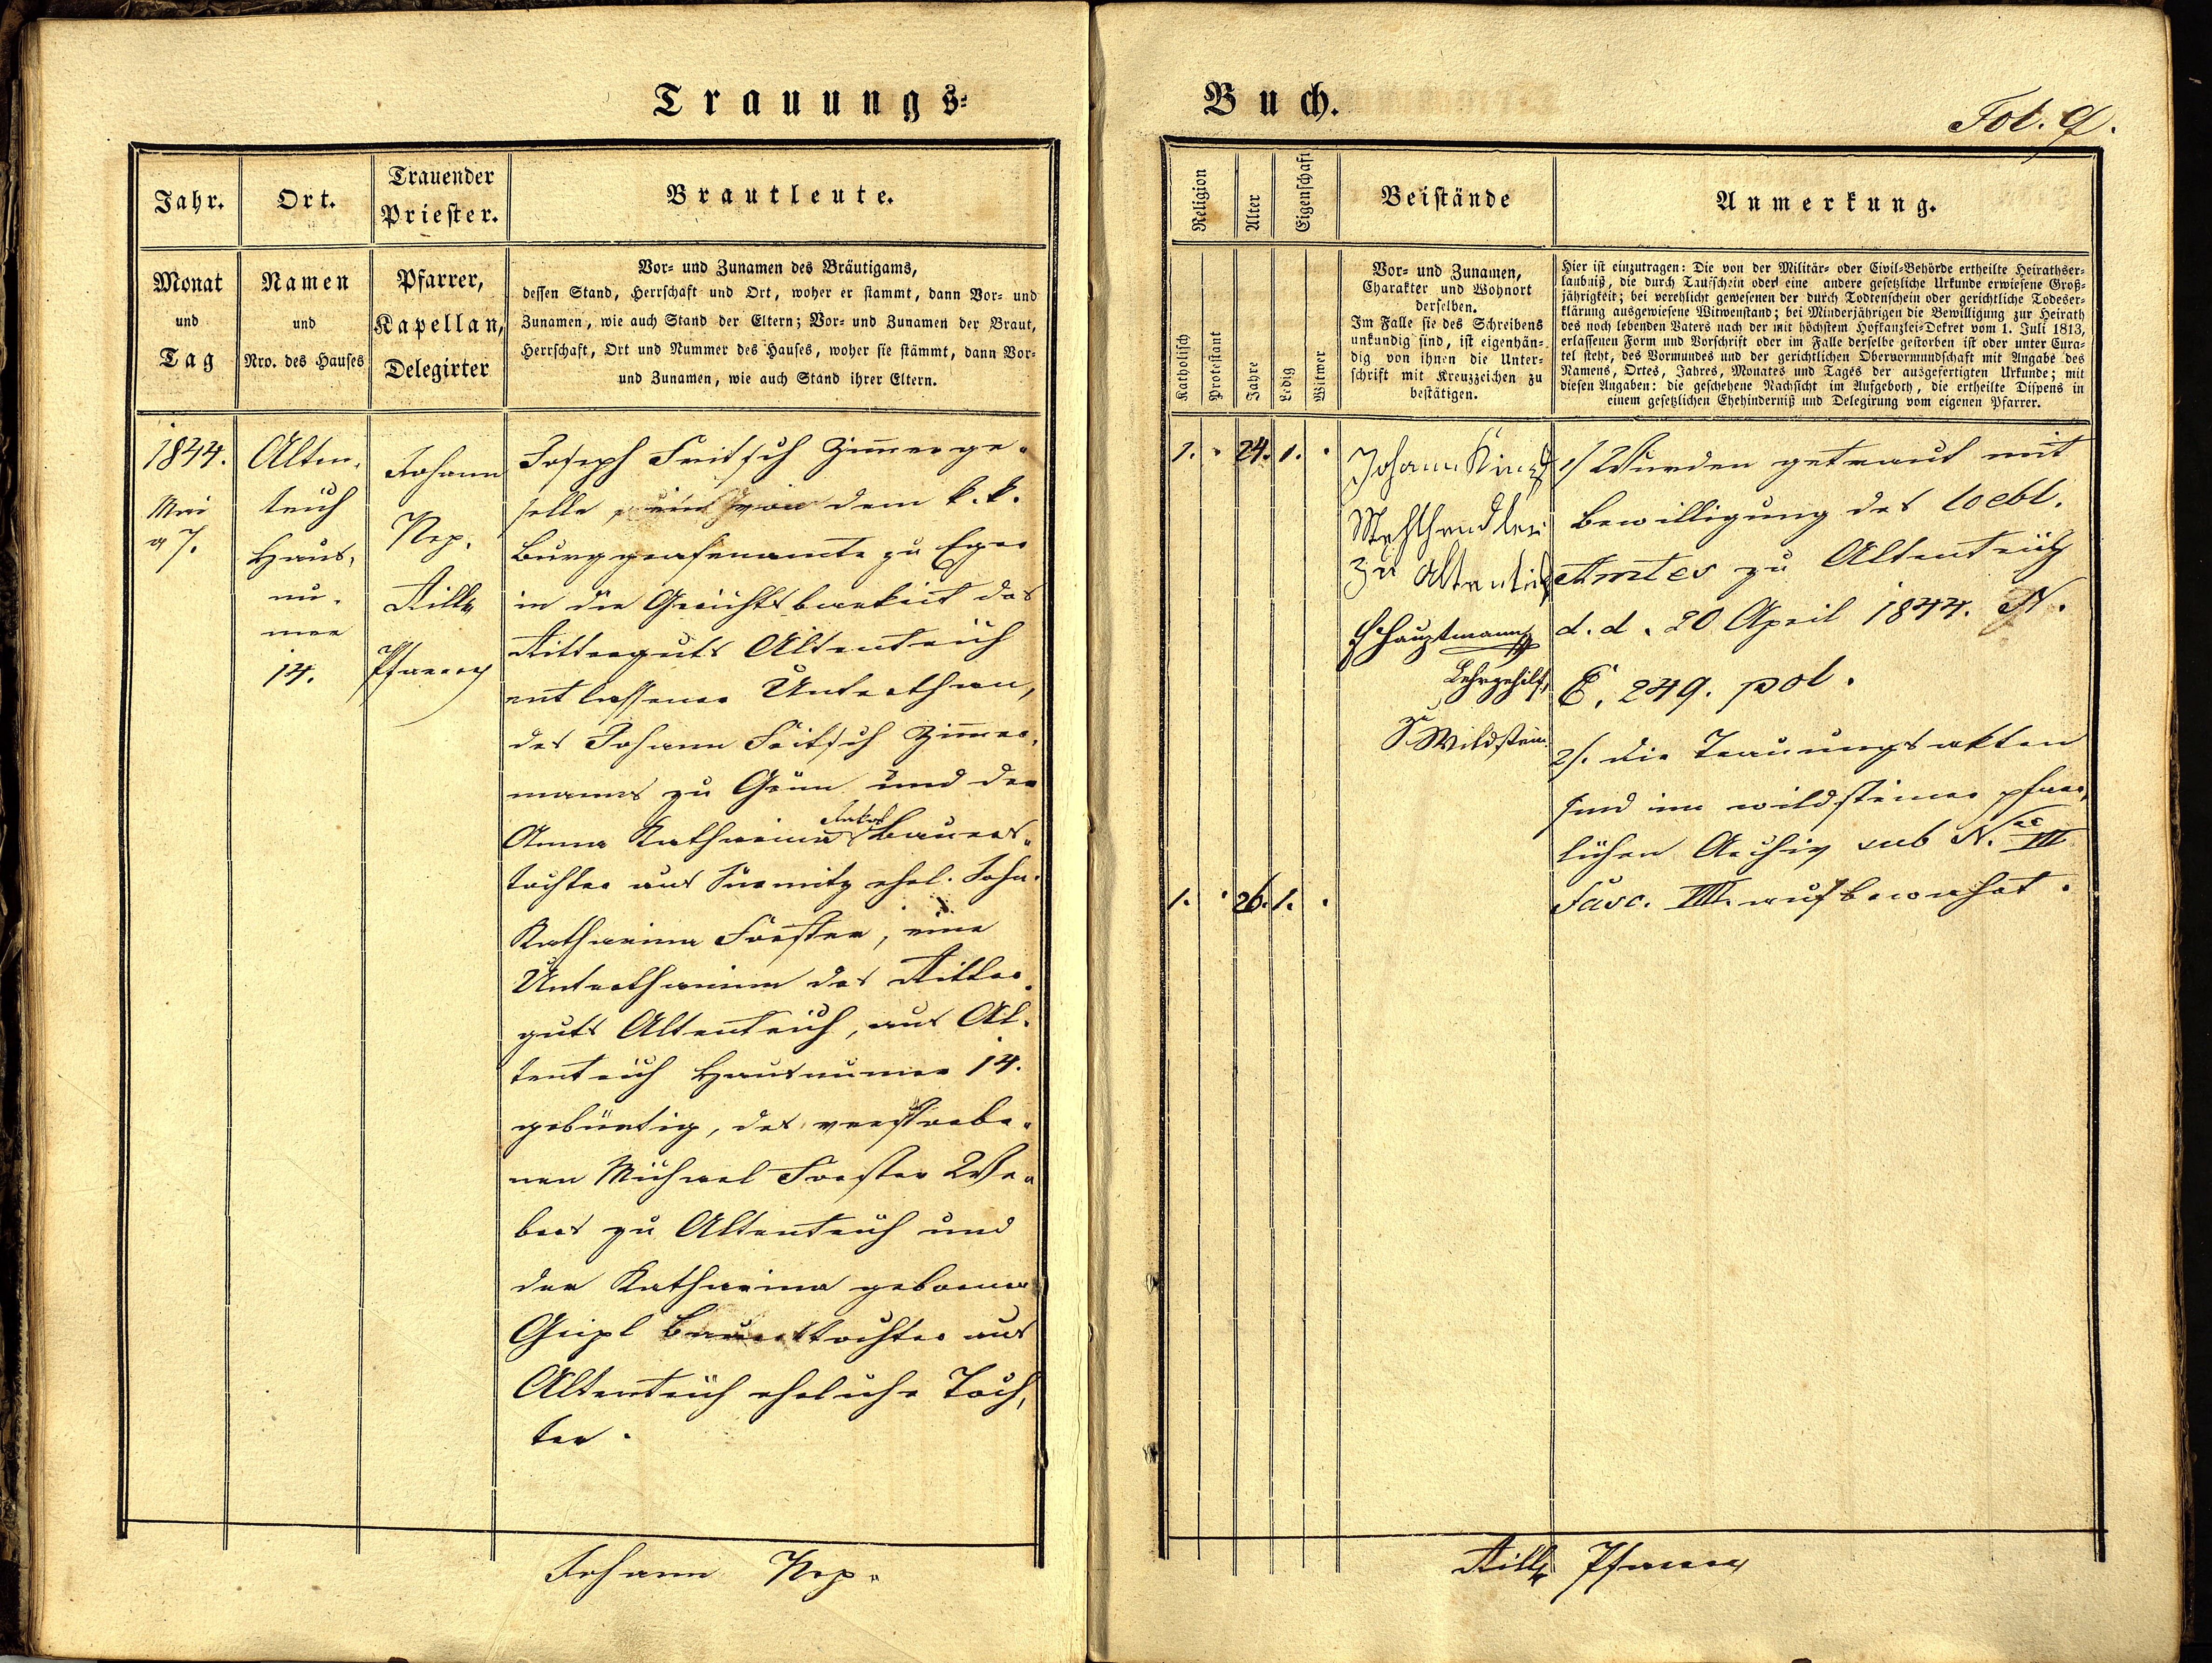 Trauungs-
Buch.
Fol. 9.
Jahr.
Ort.
Trauender
Priester.
Brautleute.
Monat
und
Tag
Namen
und
Nro. des Hauses
Pfarrer,
Kapellan,
Delegirter
Vor- und Zunamen des Bräutigams,
dessen Stand, Herrschaft und Ort, woher er stammt, dann Vor- und
Zunamen, wie auch Stand der Eltern; Vor- und Zunamen der Braut,
Herrschaft, Ort und Nummer des Hauses, woher sie stämmt, dann Vor-
und Zunamen, wie auch Stand ihrer Eltern.
1844.
Mai
7.
Alten-
teich
Haus-
nu-
mer
14.
Johann
Nep.
Rilly
Pfarrer
Joseph Fritsch Zimerge-
selle, ein von dem k. k.
Burggrafenamte zu Eger
in die Gerichtsbarkeit des
Ritterguts Altenteich
entlassener Unterthan,
des Johann Fritsch Zimer-
manns zu Grün und der
Anna Katharina Bauers-
tochter aus Sirmitz ehel. Sohn.
Katharina Forster, eine
Unterthanin des Ritter-
guts Altenteich, aus Al-
tenteich Hausnumer 14.
gebürtig, des verstorbe-
nen Michael Forster We-
bers zu Altenteich und
der Katharina geborner
Geipl Bauerstochter aus
Altenteich eheliche Toch-
ter.
Johann Nep.
Religion
Alter
Eigenschaft
Beistände
Anmerkung.
Katholisch
Protestant
Jahre
Ledig
Witwer
Vor- und Zunamen,
Charakter und Wohnort
derselben.
Im Falle sie des Schreibens
unkundig sind, ist eigenhän-
dig von ihnen die Unter-
schrift mit Kreuzzeichen zu
bestätigen.
Hier ist einzutragen: Die von der Militär- oder Civil-Behörde ertheilte Heirathser-
laubniß, die durch Taufschein oder eine andere gesetzliche Urkunde erwiesene Groß-
jährigkeit; bei verehlicht gewesenen der durch Todtenschein oder gerichtliche Todeser-
klärung ausgewiesene Witwenstand; bei Minderjährigen die Bewilligung zur Heirath
des noch lebenden Vaters nach der mit höchstem Hofkanzlei-Dekret vom 1. Juli 1813,
erlassenen Form und Vorschrift oder im Falle derselbe gestorben ist oder unter Cura-
tel steht, des Vormundes und der gerichtlichen Obervormundschaft mit Angabe des
Namens, Ortes, Jahres, Monates und Tages der ausgefertigten Urkunde; mit
diesen Angaben: die geschehene Nachsicht im Aufgeboth, die ertheilte Dispens in
einem gesetzlichen Ehehinderniß und Delegirung vom eigenen Pfarrer.
1. 24. 1.
1. 26. 1.
Johann
Mehlhendler
zu Altenteich
Hauptmann
Lehrgehilf
zu Wildstein.
1/ Wurden getraut mit
Bewilligung des loebl.
Amtes zu Altenteich
d. d. 20 April 1844. N.
E. 249. pol.
2/. die Trauungsakten
sind im wildsteiner pfarr-
lichen Archiv sub N. VII
Fasc. VIII. aufbewahrt.
Rilly Pfarrer